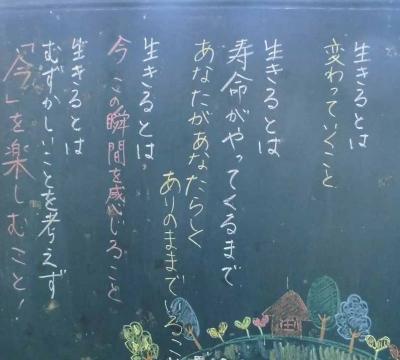 生きるとは
変わっていくこと
生きるとは
寿命がやってくるまで
あなたがあなたらしく
ありのままでいること
生きるとは
今 この瞬間を感じること
生きるとは
むずかしいことを考えず
「今」を楽しむこと！